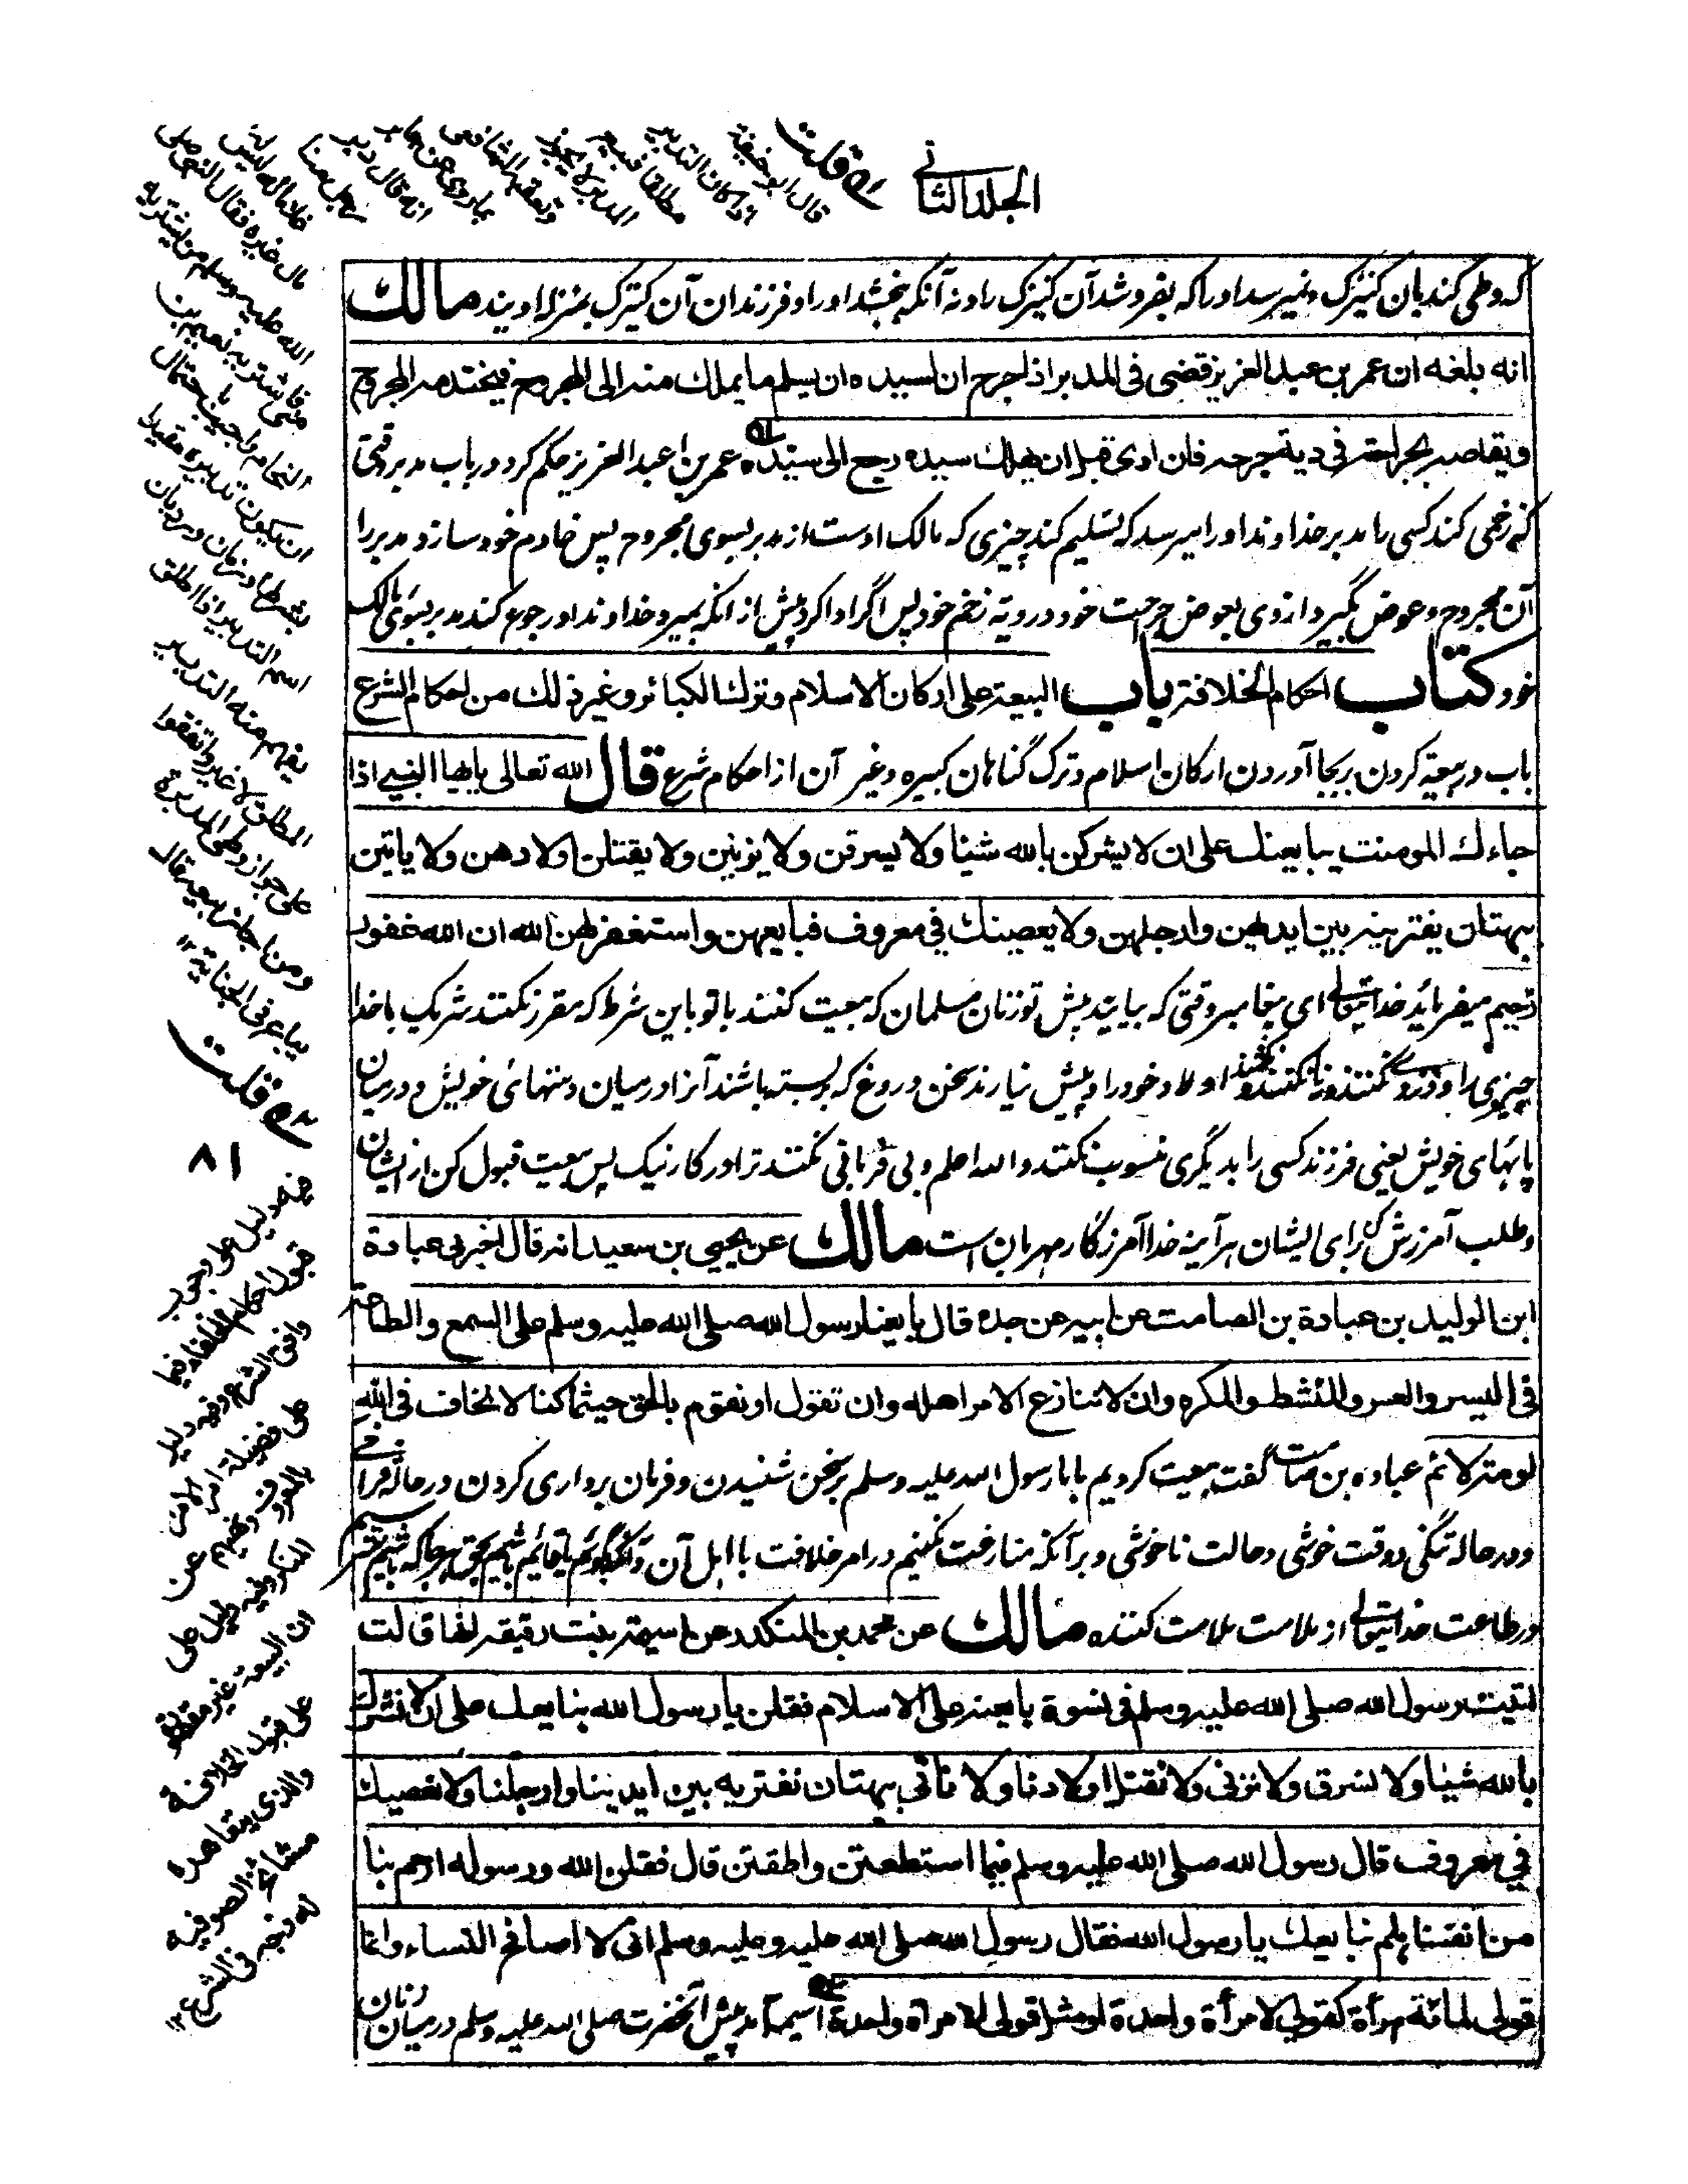 الجلد الثانی
سه قلت
قال ابو حنيفة
اذا كان التدبير
مطلقا
المدبر لا يجوز
وتعقبه الشافعي
بما روي عن جابر
انه قال دبر
رجل منا
غلاما له ليس له
مال غيره فقال النبي صلى
الله عليه وسلم من يشتريه
فاشتريه نعيم بن
النحام واجيب باحتمال
ان يكون تدبيره مقيدا
بشرط او بزمان ورد بان
اسم التدبير اذا اطلق
يفهم منه التدبير
المطلق لا غير واتفقوا
على جواز وطي المدبرة
ومن اجاز بيعه قال
يباع في الجناية ١٢
که وطی کند بان کنیزک و نمیرسد او را که بفروشد آن کنیزک را و نه آنکه بخشد او را و فرزندان آن کنیزک بمنزله اویند مالك
انه بلغه ان عمر بن عبد العزيز قضى فى المدبر اذا جرح ان لسيده ان يسلم ما يملك منه الى المجروح فيختدمه المجروح
ويقاصه بجراحته فى دية جرحه فان ادى قبل ان يهلك سيده رجع الى سيده عمر بن عبد العزیز حکم کرد در باب مدبر وقتی
که زخمی کند کسی را مدبر خداوند او را میرسد که تسلیم کند چیزی که مالک اوست از مدبر بسوی مجروح پس خادم خود سازد مدبر را
آن مجروح و عوض بگیرد از وی بعوض جراحت خود در دیة زخم خود پس اگر ادا کرد پیش از انکه بمیرد خداوند او رجوع کند مدبر بسوی مالک
خود كتاب احكام الخلافة باب البيعة على اركان الاسلام وترك الكبائر وغير ذلك من احكام الشرع
باب در بیعة کردن بر بجا آوردن ارکان اسلام و ترک گناهان کبیره و غیر آن از احکام شرع قال الله تعالى يايها النبي اذا
جاءك المومنت يبايعنك على ان لا يشركن بالله شيئا ولا يسرقن ولا يزنين ولا يقتلن اولادهن ولا ياتين
ببهتان يفترينه بين ايديهن وارجلهن ولا يعصينك في معروف فبايعهن واستغفر لهن الله ان الله غفور
رحيم میفرماید خدایتعالی ای پیغامبر وقتی که بیایند پیش تو زنان مسلمان که بیعت کنند با تو باین شرط که مقرر نکنند شریک با خدا
چیزی را و دزدی نکنند و زنا نکنند و نکشند اولاد خود را و پیش نیارند سخن دروغ که بربسته باشند آنرا در میان دستهائ خویش و در میان
پایهای خویش یعنی فرزند کسی را بدیگری منسوب نکنند والله اعلم و بی فرمانی نکنند ترا در کار نیک پس بیعت قبول کن از ایشان
و طلب آمرزش کن برای ایشان هرآینه خدا آمرزگار مهربان است مالك عن يحيى بن سعيد انه قال اخبرني عبادة
ابن الوليد بن عبادة بن الصامت عن ابيه عن جده قال بايعنا رسول الله صلى الله عليه وسلم على السمع والطاعة
فى اليسر والعسر والمنشط والمكره وان لا ننازع الامر اهله وان نقول او نقوم بالحق حيثما كنا لا نخاف فى الله
لومة لائم عباده بن صامت گفت بیعت کردیم با رسول الله علیه وسلم بر سخن شنیدن و فرمان برداری کردن در حالة فراخی
و در حالة تنگی و وقت خوشی و حالت ناخوشی و بر آنکه منازعت نکنیم در امر خلافت با اهل آن و آنکه بگوئیم یا قائم باشیم بحق هر جا که باشیم نترسیم
در طاعت خدایتعالی از ملامت ملامت کننده مالك عن محمد بن المنكدر عن اميمة بنت رقيقة انها قالت
اتيت رسول الله صلى الله عليه وسلم فى نسوة بايعنه على الاسلام فقلن يا رسول الله نبايعك على ان لا نشرك
بالله شيئا ولا نسرق ولا نزنى ولا نقتل اولادنا ولا نأتى ببهتان نفتريه بين ايدينا وارجلنا ولا نعصيك
في معروف قال رسول الله صلى الله عليه وسلم فيما استطعتن واطقتن قال فقلن الله ورسوله ارحم بنا
من انفسنا هلم نبايعك يا رسول الله فقال رسول الله صلى الله عليه وعليه وسلم انى لا اصافح النساء وانما
قولى لمائة امرأة كقولي لامرأة واحدة او مثل قولى لامرأة واحدة امیمه آمد پیش آنحضرت صلی الله علیه وسلم در میان زنان
سه قلت
٨١
فيه دليل على وجوب
قبول احكام الخلفاء فيما
وافق الشرع وفيه دليل
على فضيلة الامر
بالمعروف ونهيهم عن
المنكر وفيه دليل على
ان البيعة غير مقصورة
على قبول الخلافة
والذى يتعاهده
مشائخ الصوفيه
له وجه فى الشرع ١٢